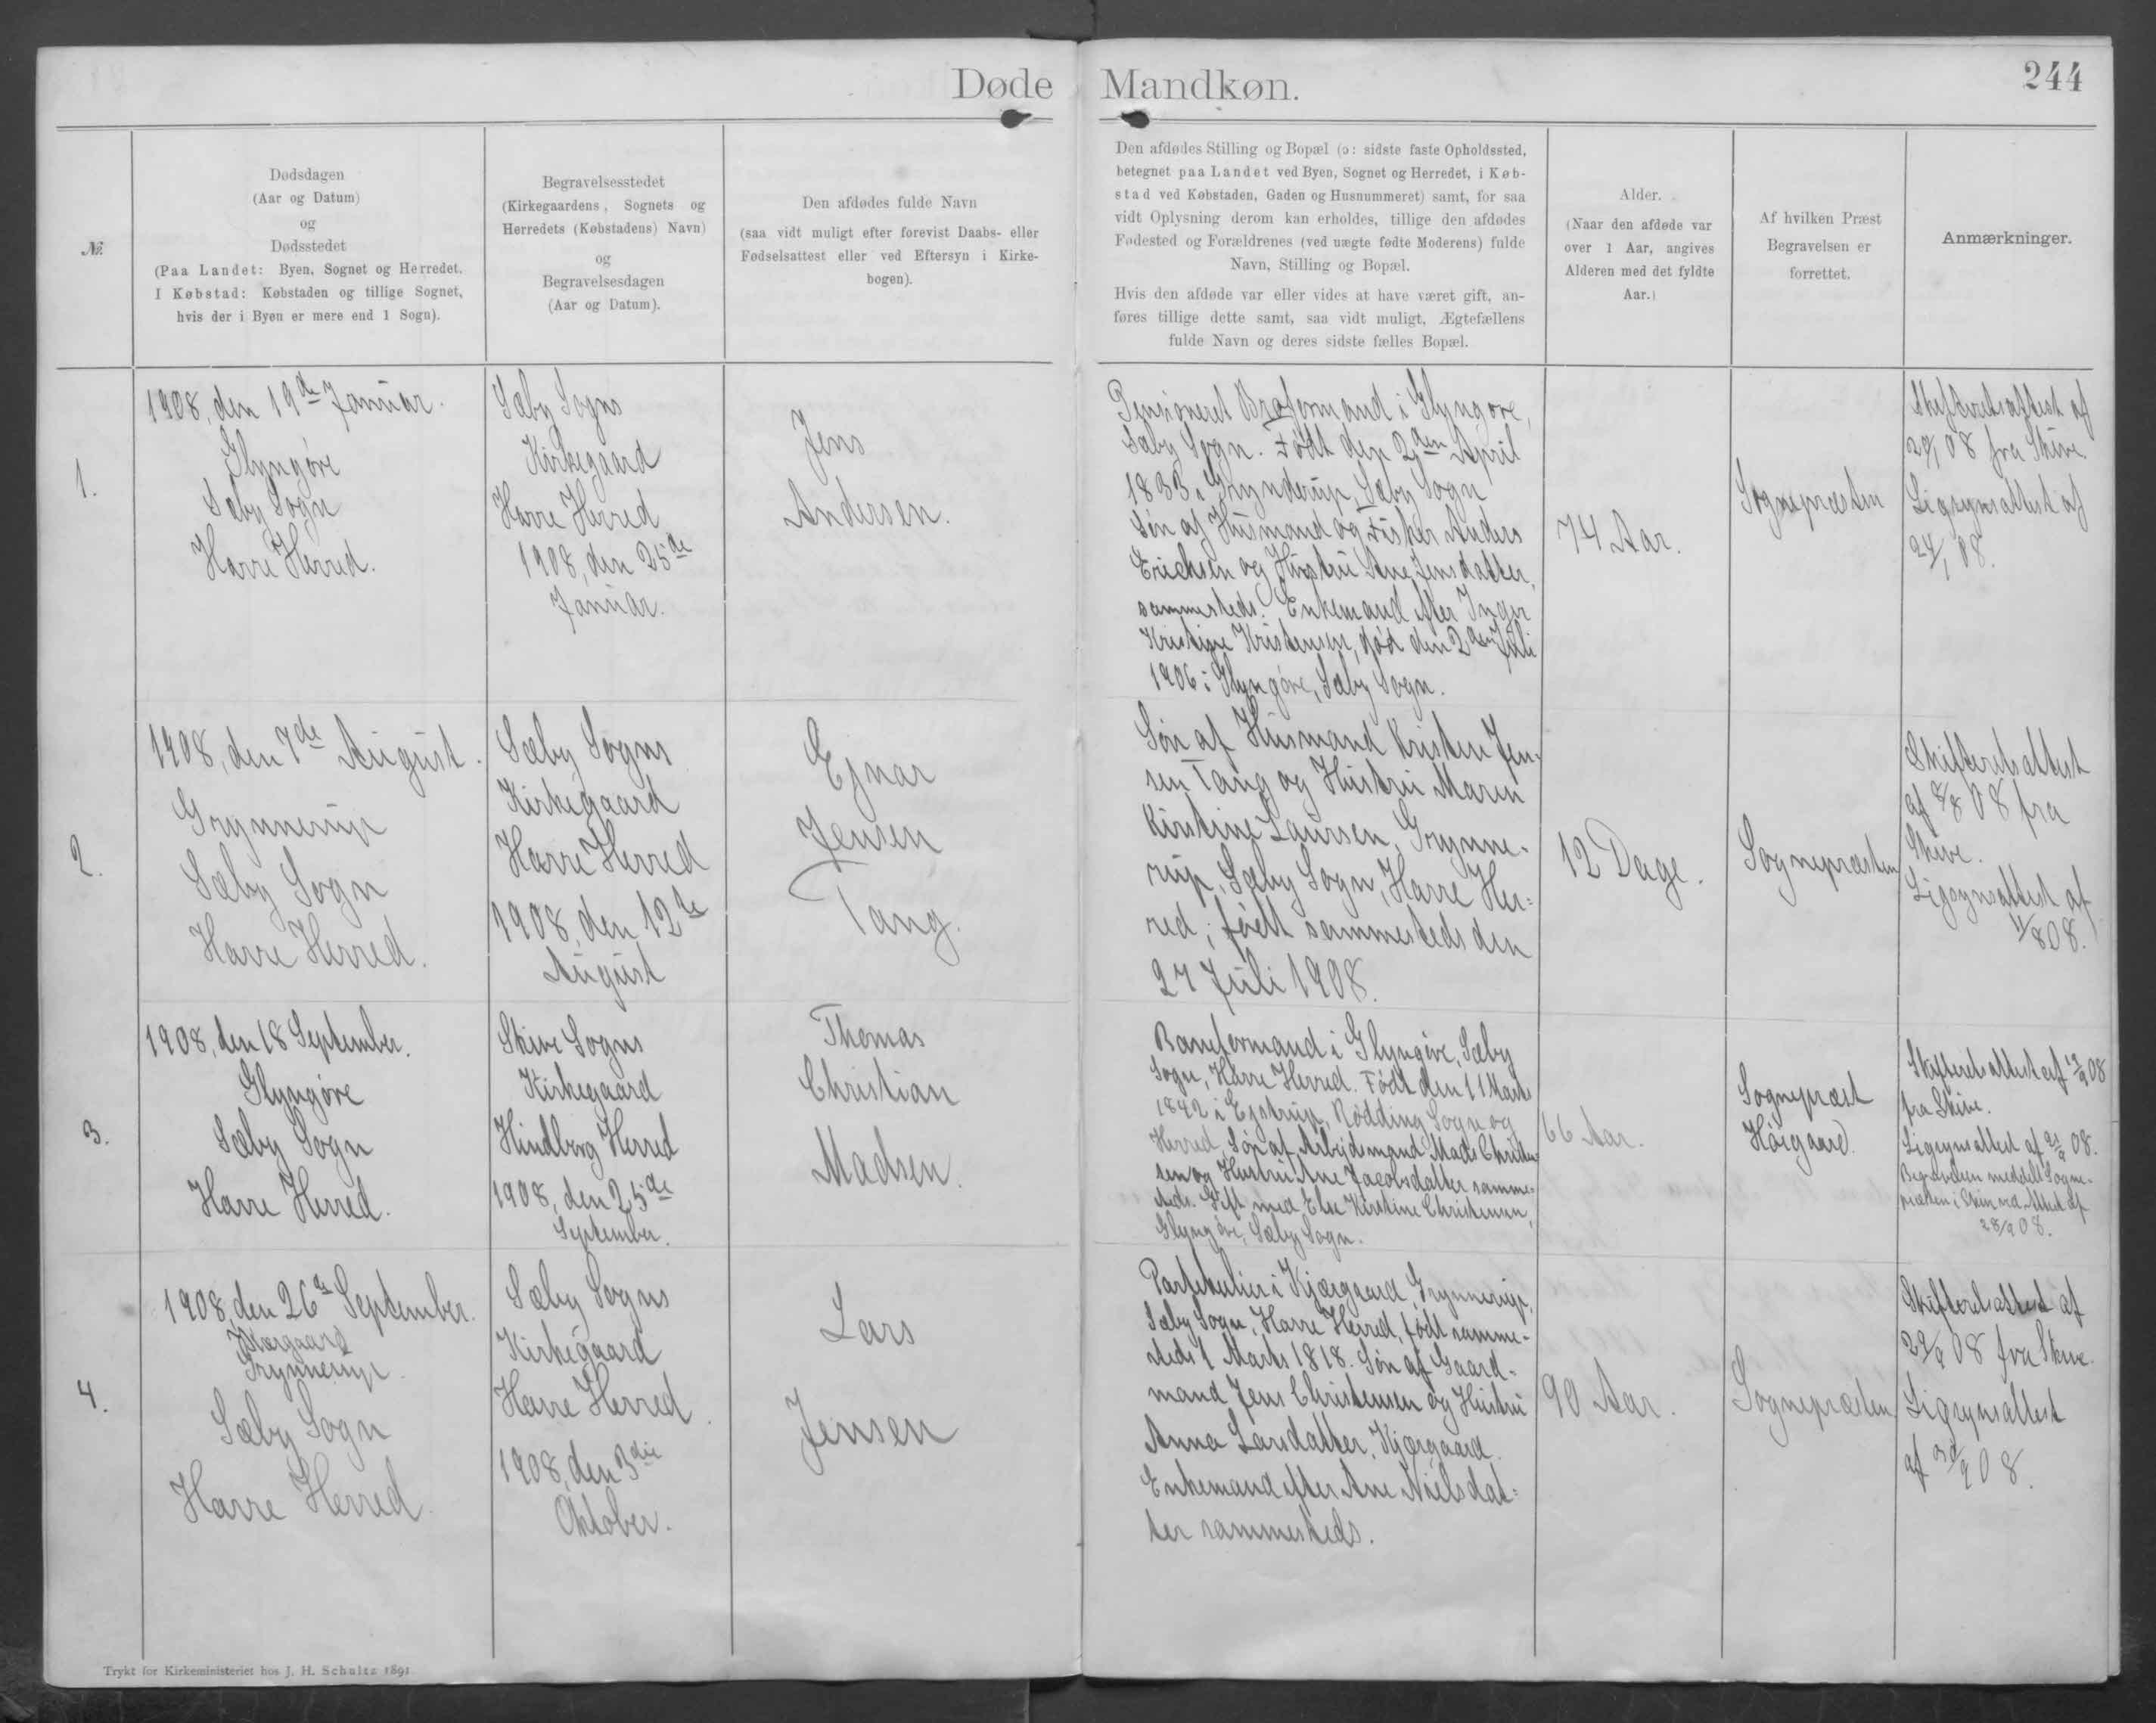 Døde Mandkøn.
244
№
Dødsdagen
(Aar og Datum)
og
Dødsstedet
(Paa Landet: Byen, Sognet og Herredet.
I Købstad: Købstaden og tillige Sognet,
hvis der i Byen er mere end 1 Sogn).
Begravelsesstedet
(Kirkegaardens, Sognets og
Herredets (Købstadens) Navn)
og
Begravelsesdagen
(Aar og Datum).
Den afdødes fulde Navn
(saa vidt muligt efter forevist Daabs- eller
Fødselsattest eller ved Eftersyn i Kirke-
bogen).
Den afdødes Stilling og Bopæl (ɔ: sidste faste Opholdssted,
betegnet paa Landet ved Byen, Sognet og Herredet, i Køb-
stad ved Købstaden, Gaden og Husnummeret) samt, for saa
vidt Oplysning derom kan erholdes, tillige den afdødes
Fødested og Forældrenes (ved uægte fødte Moderens) fulde
Navn, Stilling og Bopæl.
Hvis den afdøde var eller vides at have været gift, an-
føres tillige dette samt, saa vidt muligt, Ægtefællens
fulde Navn og deres sidste fælles Bopæl.
Alder.
(Naar den afdøde var
over 1 Aar, angives
Alderen med det fyldte
Aar.)
Af hvilken Præst
Begravelsen er
forrettet.
Anmærkninger.
1.
1908, den 19de Januar.
Glyngøre
Sæby Sogn
Harre Herred.
Sæby Sogns
Kirkegaard
Harre Herred
1908, den 25de
Januar.
Jens
Andersen.
Pensioneret i Glyngøre,
Sæby Sogn. Født den 2den April
1833 i Grynderup, Sæby Sogn
Søn af Husmand og Fisker Anders
Erichsen og Hustru Ane Jensdatter,
sammesteds. Enkemand efter Inger
Kristine Kristensen, død den 2den Juli
1906 i Glyngøre, Sæby Sogn.
74 Aar.
Sognepræsten
Skifteretsattest af
08 fra Skive.
Ligsynsattest af
24/1 08.
2.
1908, den 7de August.
Grynnerup
Sæby Sogn
Harre Herred.
Sæby Sogns
Kirkegaard
Harre Herred
1908, den 12te
August
Ejnar
Jensen
Tang.
Søn af Husmand Kristen Jen-
sen Tang og Hustru Maren
Kirstine Laursen, Grynne-
rup, Sæby Sogn, Harre Her-
red; født sammesteds den
27 Juli 1908.
12 Dage.
Sognepræsten
Skifteretsattest
af 8/8 08 fra
Skive.
Ligsynsattest af
11/8 08.
3.
1908, den 18 September.
Glyngøre
Sæby Sogn
Harre Herred.
Skive Sogns
Kirkegaard
Hindborg Herred
1908, den 25de
September.
Thomas
Christian
Madsen.
Baneformand i Glyngøre, Sæby
Sogn, Harre Herred. Født den 11 Marts
1842 i Ejstrup, Rødding Sogn og
Herred, Søn af Arbejdsmand Mads Christen-
sen og Hustru Ane Jacobsdatter samme-
steds. Gift med Else Kirstine Christensen,
Glyngøre, Sæby Sogn.
66 Aar.
Sognepræst
Høgaard.
Skifteretsattest af 08
fra Skive.
Ligsynsattest af 08.
Begravelsen meddelt Sogne-
præsten i Skive ved Attest af
08.
4.
1908, den 26de September.
Kjærgaard
Grynnerup
Sæby Sogn
Harre Herred.
Sæby Sogns
Kirkegaard
Harre Herred.
1908, den 3die
Oktober.
Lars
Jensen
Partikulier i Kjærgaard Grynnerup,
Sæby Sogn, Harre Herred, født samme-
steds 1 Marts 1818. Søn af Gaard-
mand Jens Christensen og Hustru
Anna Larsdatter, Kjærgaard.
Enkemand efter Ane Nielsdat-
ter sammesteds.
90 Aar.
Sognepræsten
Skifteretsattest af
29/9 08 fra Skive.
Ligsynsattest
af 30/9 08.
Trykt for Kirkeministeriet hos J. H. Schultz 1891